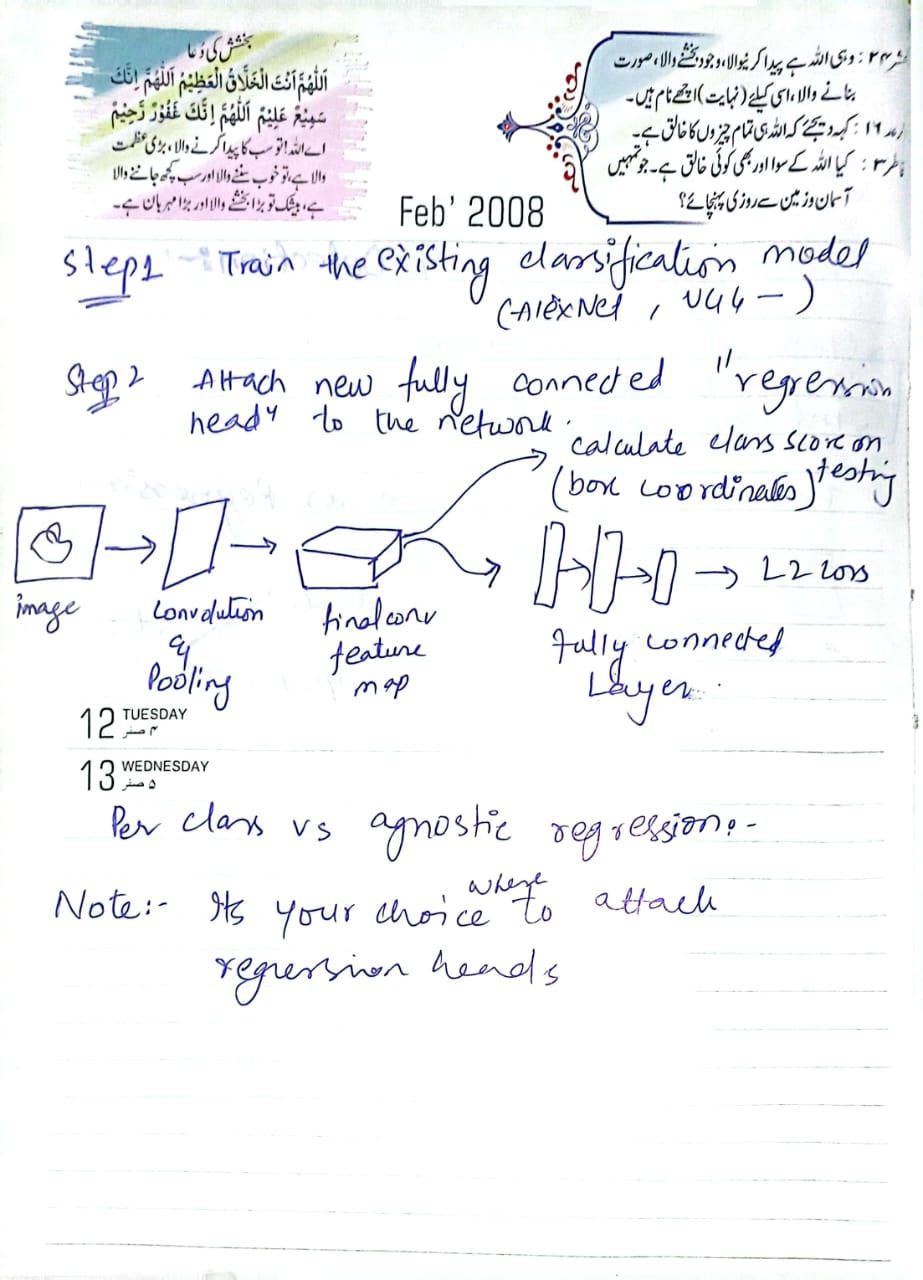 بخشش کی دُعا
اَللّٰهُمَّ اَنْتَ الْخَلَّاقُ الْعَظِيْمُ اَللّٰهُمَّ اِنَّكَ
سَمِيْعٌ عَلِيْمٌ اَللّٰهُمَّ اِنَّكَ غَفُوْرٌ رَّحِيْمٌ
اے اللہ! تو سب کا پیدا کرنے والا، بڑی عظمت
والا ہے، تو خوب سننے والا اور سب کچھ جاننے والا
ہے، بیشک تو بڑا بخشنے والا اور بڑا مہربان ہے۔
۲۴ : وہی اللہ ہے پیدا کرنیوالا، وجود بخشنے والا، صورت
بنانے والا، اسی کیلئے (نہایت) اچھے نام ہیں۔
۱۶ : کہہ دیجئے کہ اللہ ہی تمام چیزوں کا خالق ہے۔
۳ : کیا اللہ کے سوا اور بھی کوئی خالق ہے۔ جو تمہیں
آسمان و زمین سے روزی پہنچائے؟
Feb' 2008
Step1 - Train the existing classification model
(AlexNet, VGG -)
Step 2 Attach new fully connected "regression
head" to the network.
calculate class score on
(box coordinates) testing
L2 Loss
image
Convolution
&
Pooling
final conv
feature
map
fully connected
Layer.
12 TUESDAY
۴ صفر
13 WEDNESDAY
۵ صفر
Per class vs agnostic regression:-
where
Note:- Its your choice to attach
regression heads